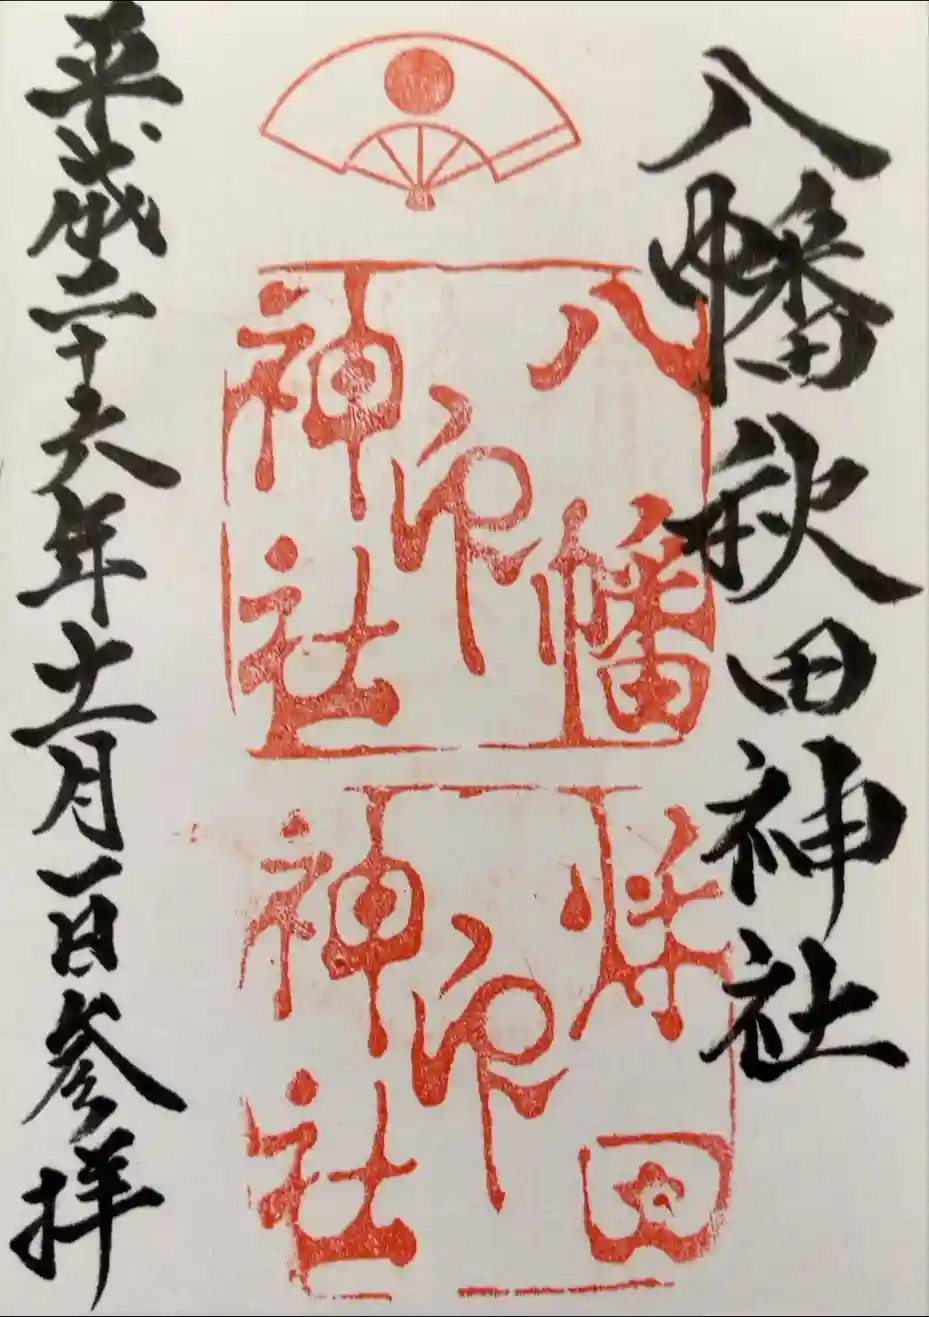 八幡秋田神社
八幡
神社
印
秋田
神社
印
平成二十六年十一月一日参拝